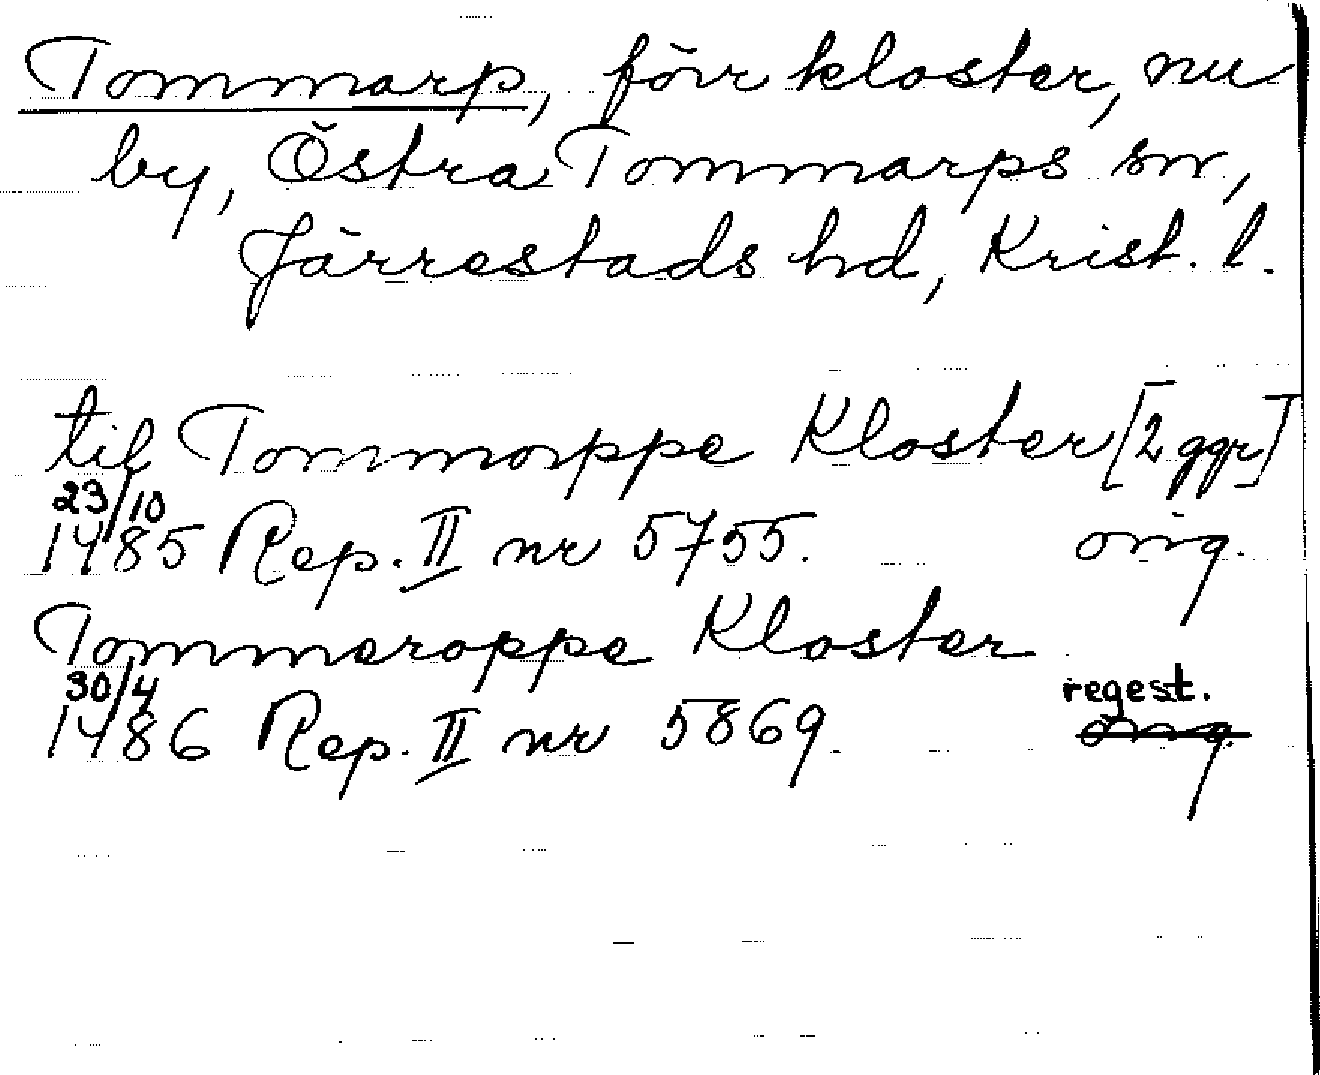 Tommarp, förr kloster, nu
by, Östra Tommarps sn,
Järrestads hd, Krist. l.
til Tommorppe Kloster [2 ggr]
23/10
1485 Rep. II nr 5755. orig.
Tommeroppe Kloster
30/4 regest.
1486 Rep. II nr 5869. orig.